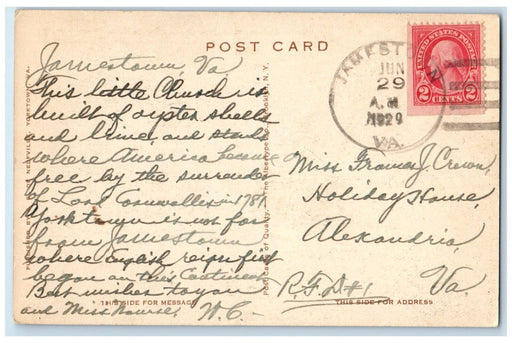 POST CARD
Jamestown, Va
This little Church is
built of oyster shells
and lime, and stands
where America became
free by the surrender
of Lord Cornwallis in 1781.
Yorktown is not far
from Jamestown
where english reign first
began on this Continent
Best wishes to you
and Miss Nourse, W.C.-
THIS SIDE FOR MESSAGE
JAMESTOWN
JUN
29
A.M
1929
VA.
UNITED STATES POSTAGE
2 CENTS 2
Miss Frances J. Crown,
Holiday House,
Alexandria,
Va.
R.F.D#1
THIS SIDE FOR ADDRESS